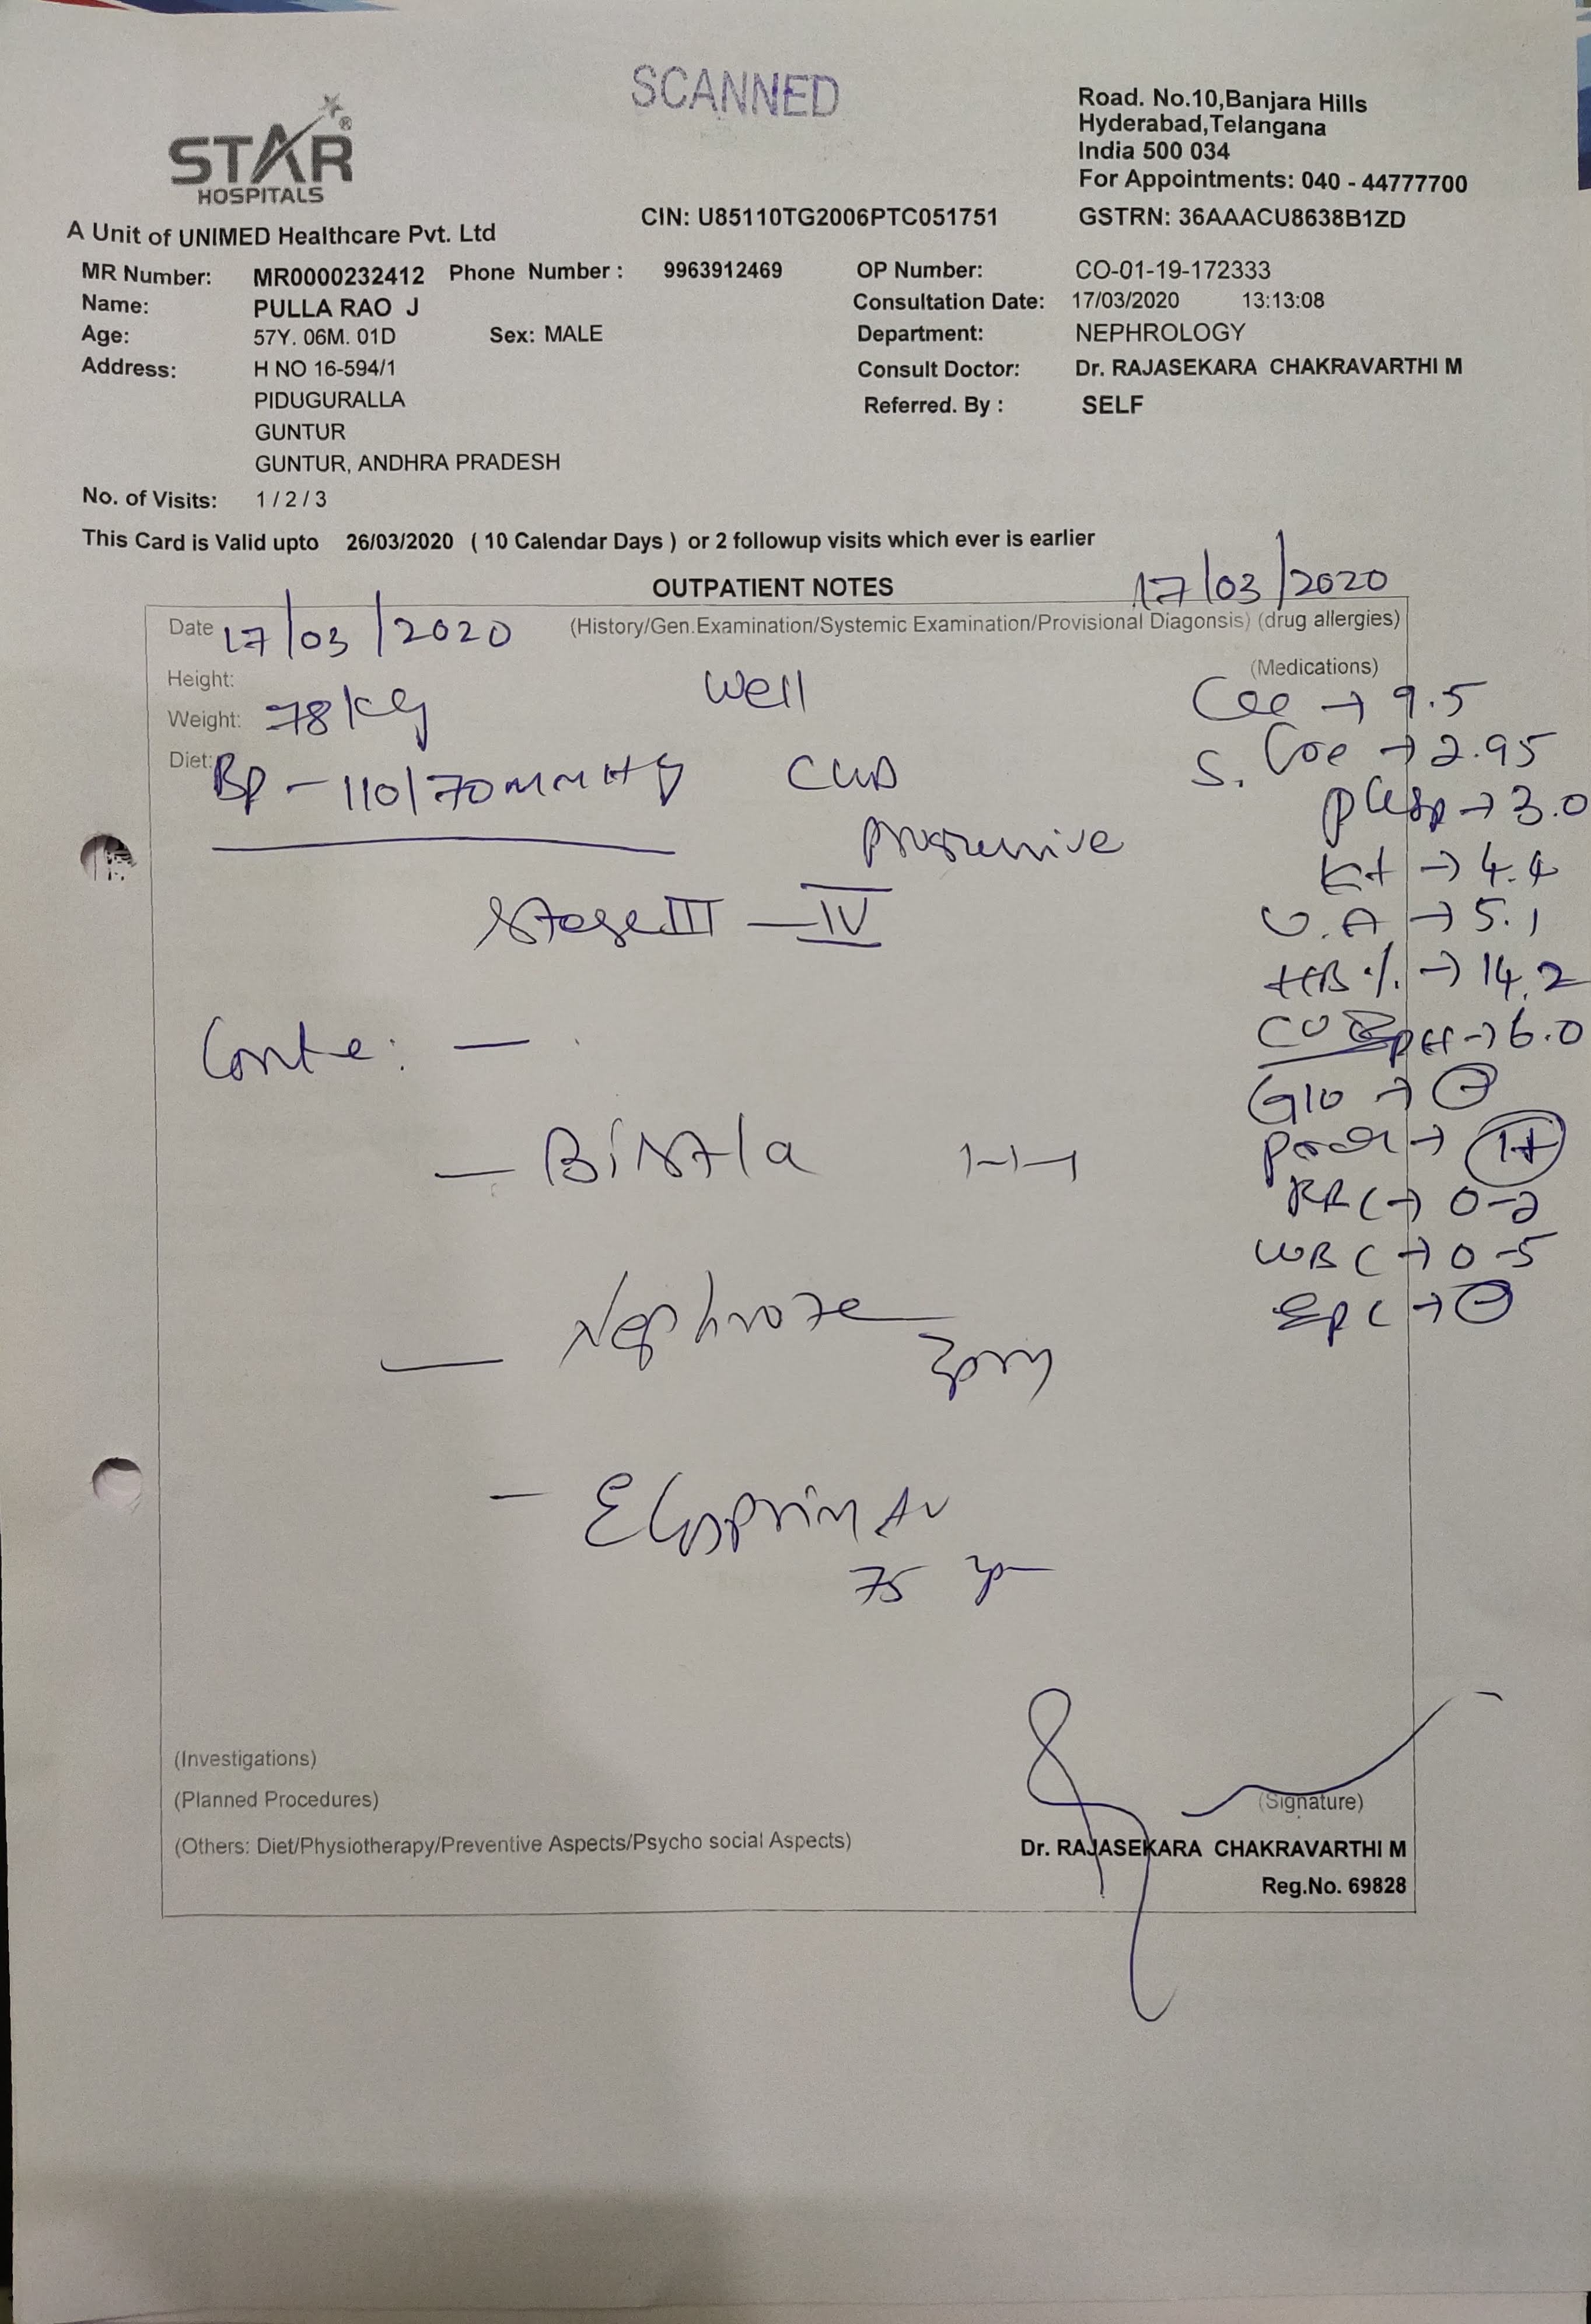 SCANNED
STAR
HOSPITALS
A Unit of UNIMED Healthcare Pvt. Ltd
Road. No.10,Banjara Hills
Hyderabad,Telangana
India 500 034
For Appointments: 040 - 44777700
CIN: U85110TG2006PTC051751
GSTRN: 36AAACU8638B1ZD
MR Number: MR0000232412 Phone Number : 9963912469
Name: PULLA RAO J
Age: 57Y. 06M. 01D Sex: MALE
Address: H NO 16-594/1
PIDUGURALLA
GUNTUR
GUNTUR, ANDHRA PRADESH
OP Number: CO-01-19-172333
Consultation Date: 17/03/2020 13:13:08
Department: NEPHROLOGY
Consult Doctor: Dr. RAJASEKARA CHAKRAVARTHI M
Referred. By : SELF
No. of Visits: 1 / 2 / 3
This Card is Valid upto 26/03/2020 ( 10 Calendar Days ) or 2 followup visits which ever is earlier
OUTPATIENT NOTES
17/03/2020
Date 17/03/2020
(History/Gen.Examination/Systemic Examination/Provisional Diagonsis) (drug allergies)
(Medications)
Height:
Weight: 78 kg
Diet:
BP - 110/70 mm Hg
Well
CKD
progressive
Stage III - IV
→ 9.5
S. Cre → 2.95
→ 3.0
K+ → 4.4
U.A → 5.1
HB % → 14.2
CUE PH → 6.0
Glu → -
→ 1+
RBC → 0-2
WBC → 0-5
Epc → -
- 1-1-1
- Ecosprin AV
75
(Investigations)
(Planned Procedures)
(Others: Diet/Physiotherapy/Preventive Aspects/Psycho social Aspects)
(Signature)
Dr. RAJASEKARA CHAKRAVARTHI M
Reg.No. 69828